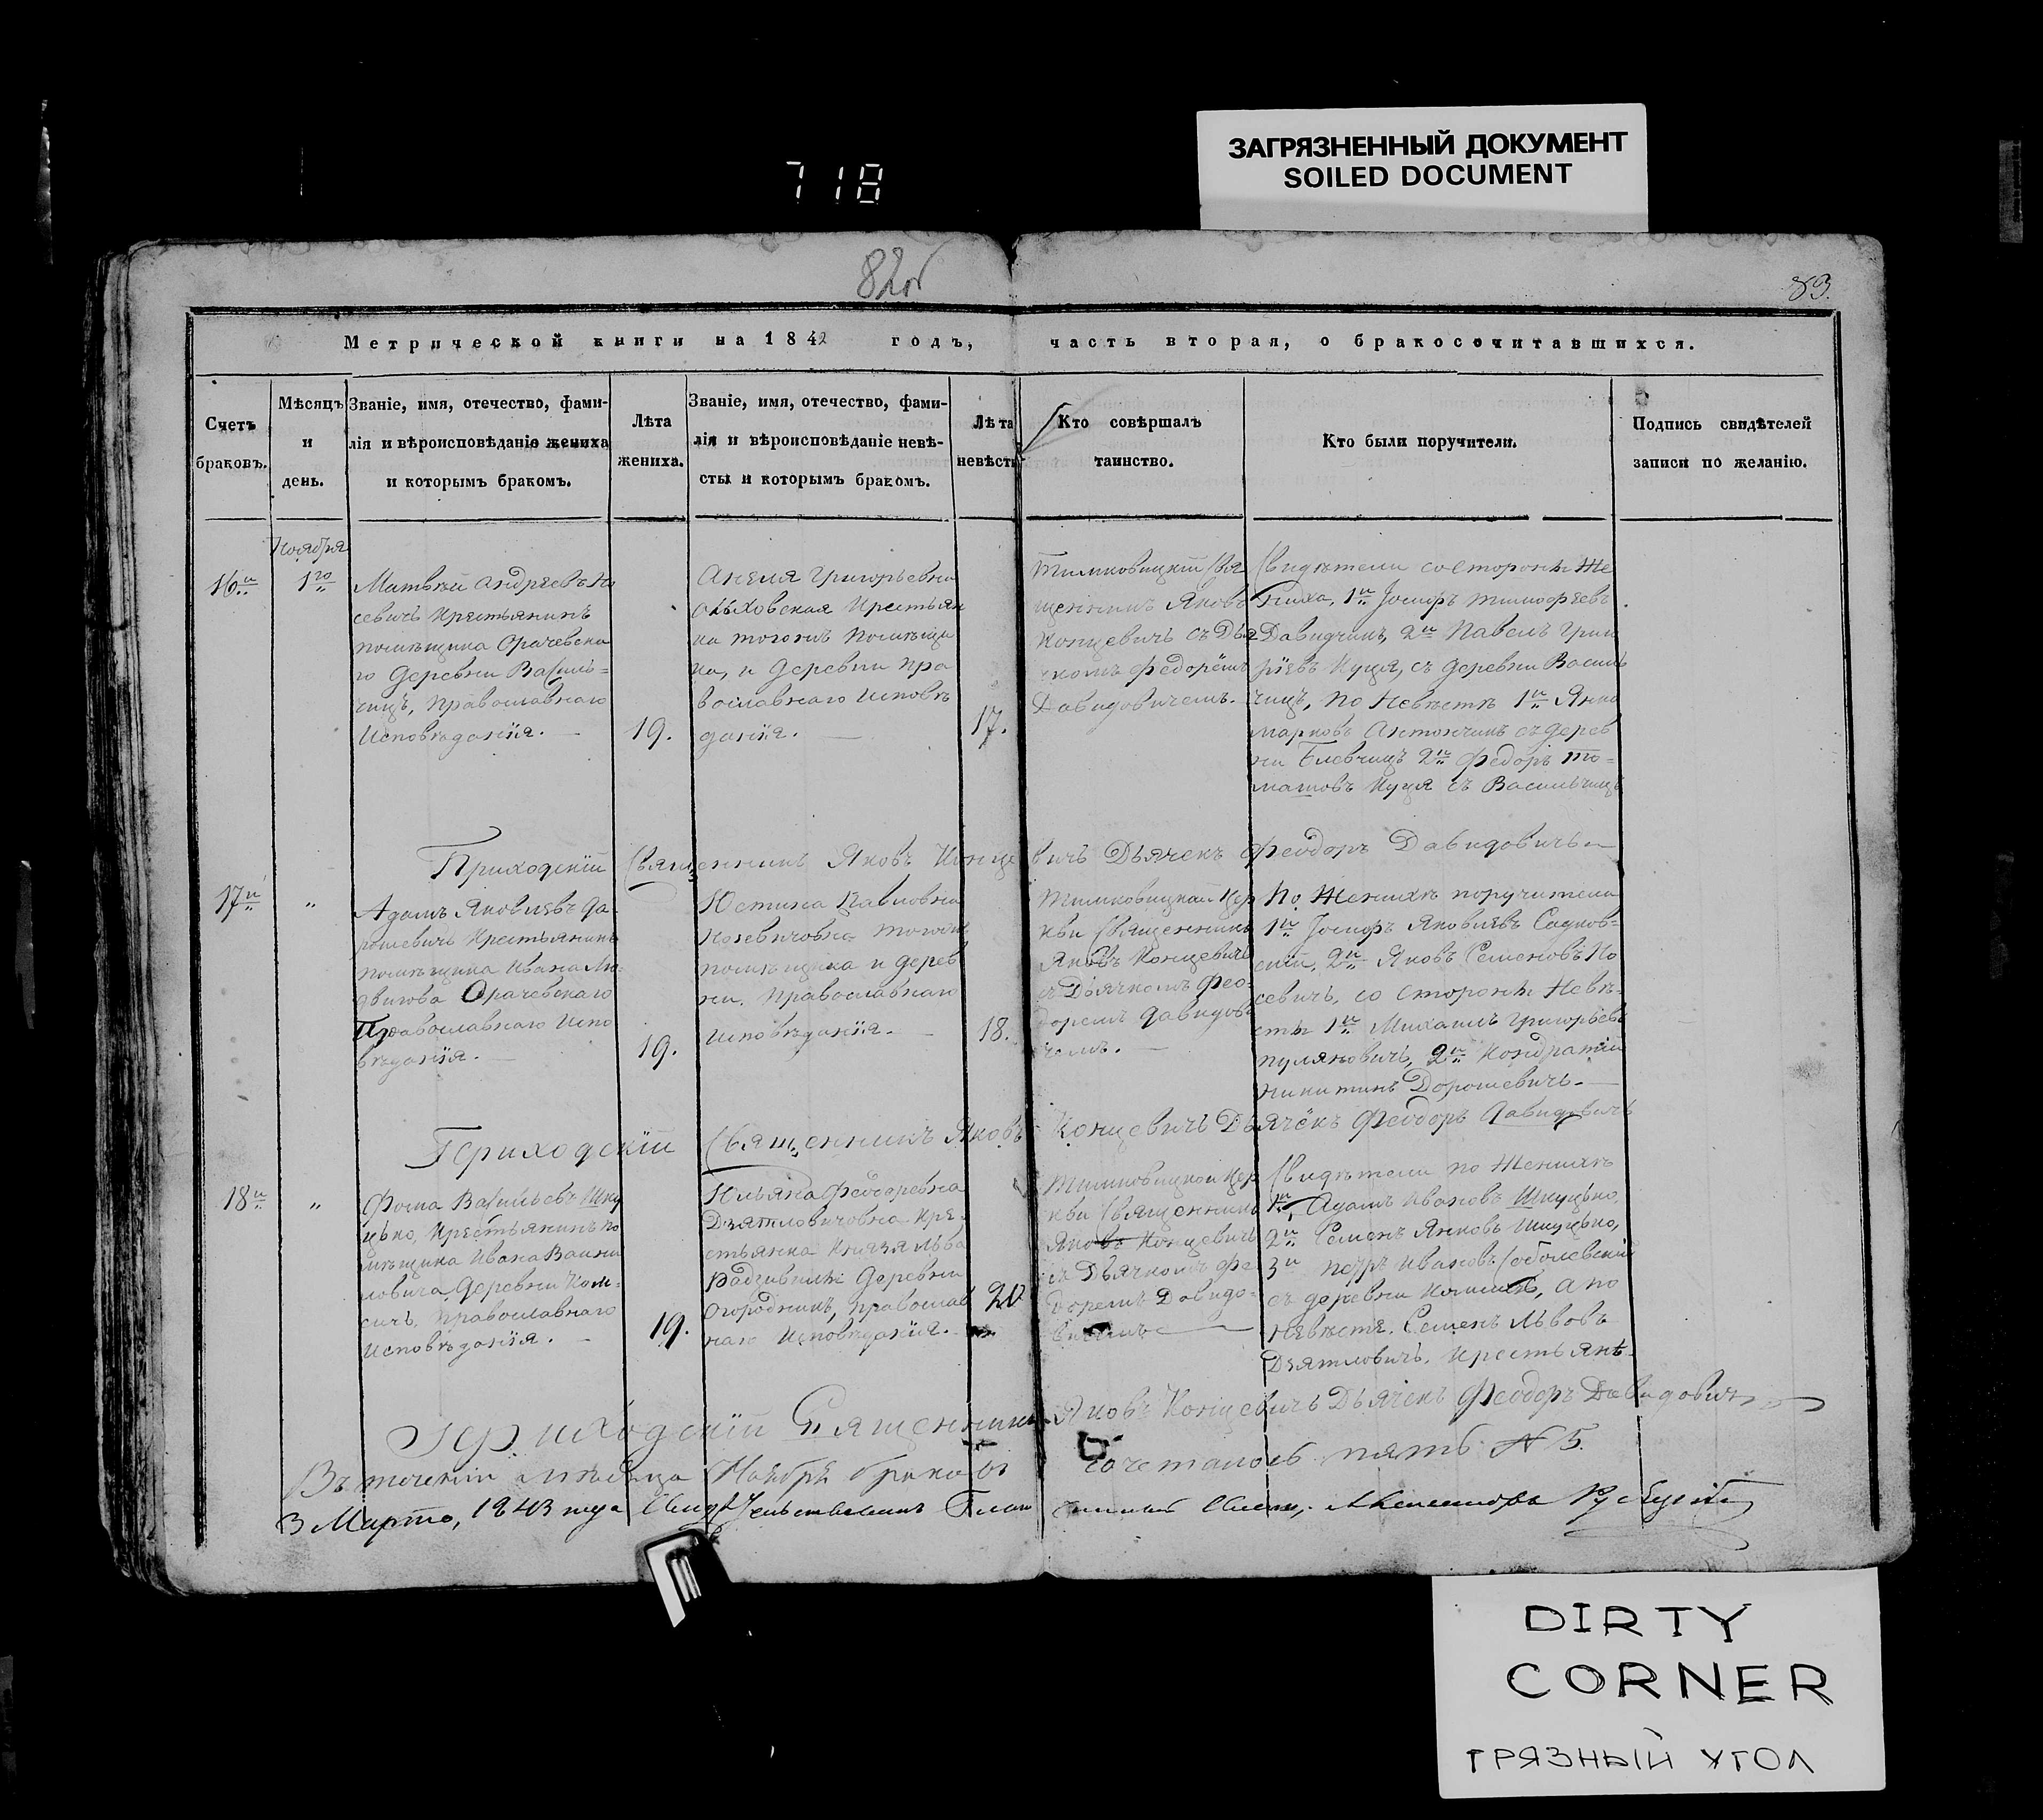 ЗАГРЯЗНЕННЫЙ ДОКУМЕНТ
SOILED DOCUMENT
718
82об
83.
Метрической книги на 1842 годъ, часть вторая, о бракосочитавшихся.
Счетъ браковъ.
Мѣсяцъ и день.
Званіе, имя, отечество, фами-
лія и вѣроисповѣданіе жениха
и которымъ бракомъ.
Лѣта жениха.
Званіе, имя, отечество, фами-
лія и вѣроисповѣданіе невѣ-
сты и которымъ бракомъ.
Лѣта невѣсты
Кто совѣршалъ
таинство.
Кто были поручители.
Подпись свидѣтелей
записи по желанію.
Ноября
16й
1го
Матвѣй Андреевъ Но
севичъ Крестьянинъ
помѣщика Орачевска
го деревни Василь=
чицъ, Православнаго
Исповѣданія.
19.
Анеля Григорьевна
Крестьян
ка тогожъ помѣщи
ка, и деревни пра
вославнаго исповѣ
данія.
17.
Тимковицкій Свя
щенникъ Яковъ
Концевичъ съ Дья
комъ Федоромъ
Давидовичемъ.
Свидѣтели со стороны Же
ниха, 1й Іосифъ Тимофѣевъ
Давидчикъ, 2й Павелъ Григо
ріевъ Куця, съ деревни Василь
чицъ, по Невѣстѣ 1й Янко
Марковъ Антончикъ съ дерев
ни 2й Федоръ То=
машовъ Куця съ Васильчицъ
Приходскій Священникъ Яковъ Концевичъ Дьячекъ Феодоръ Давидовичъ
17й
"
Адамъ Яковлевъ Да
Крестьянинъ
помѣщика Ивана Лю
двигова Орачевскаго
Православнаго Испо
вѣданія.
19.
Юстина Павловна
Носевичовна тогожъ
помѣщика и дерев
ни, Православнаго
исповѣданія.
18.
Тимковицкой Цер
кви Священникъ
Яковъ Концевичъ
съ Дьячкомъ Фео
доромъ Давидови
чемъ.
По Женихѣ поручители
1й Іосифъ Яковлевъ
2й Яковъ Семеновъ Но
севичъ, со стороны Невѣ
сты 1й Михаилъ Григорьевъ
2й Кондратій
Никитинъ Дорошевичъ.
Приходскій Священникъ Яковъ Концевичъ Дьячёкъ Феодоръ Давидовичъ
18й
"
Фома Васильевъ Шку
цько, Крестьянинъ по
мѣщика Ивана
деревни Ком=
сичъ, Православнаго
исповѣданія.
19.
Ульяна Феодоревна
Дзятловичовна Кре
стьянка Князя Льва
Радзивила деревни
Огородникъ, православ
наго Исповѣданія.
20
Тимковицкой Цер
кви Священникъ
Яковъ Концевичъ
съ Дьячкомъ Фе
доромъ Давидо
вичемъ
Свидѣтели по Женихѣ
1й, Адамъ Ивановъ Шкуцько,
2й Семенъ Янковъ Шкуцько,
3й Петръ Ивановъ Соболевскій
съ деревни а по
Невѣстѣ. Семенъ Львовъ
Дзятловичъ. Крестьяне.
Приходскій Священникъ Яковъ Концевичъ Дьячекъ Феодоръ Давидовичъ
Въ теченіи мѣсяца Ноября браковъ сочеталось пять N 5.
3 Марта, 1843 года
DIRTY
CORNER
ГРЯЗНЫЙ УГОЛ